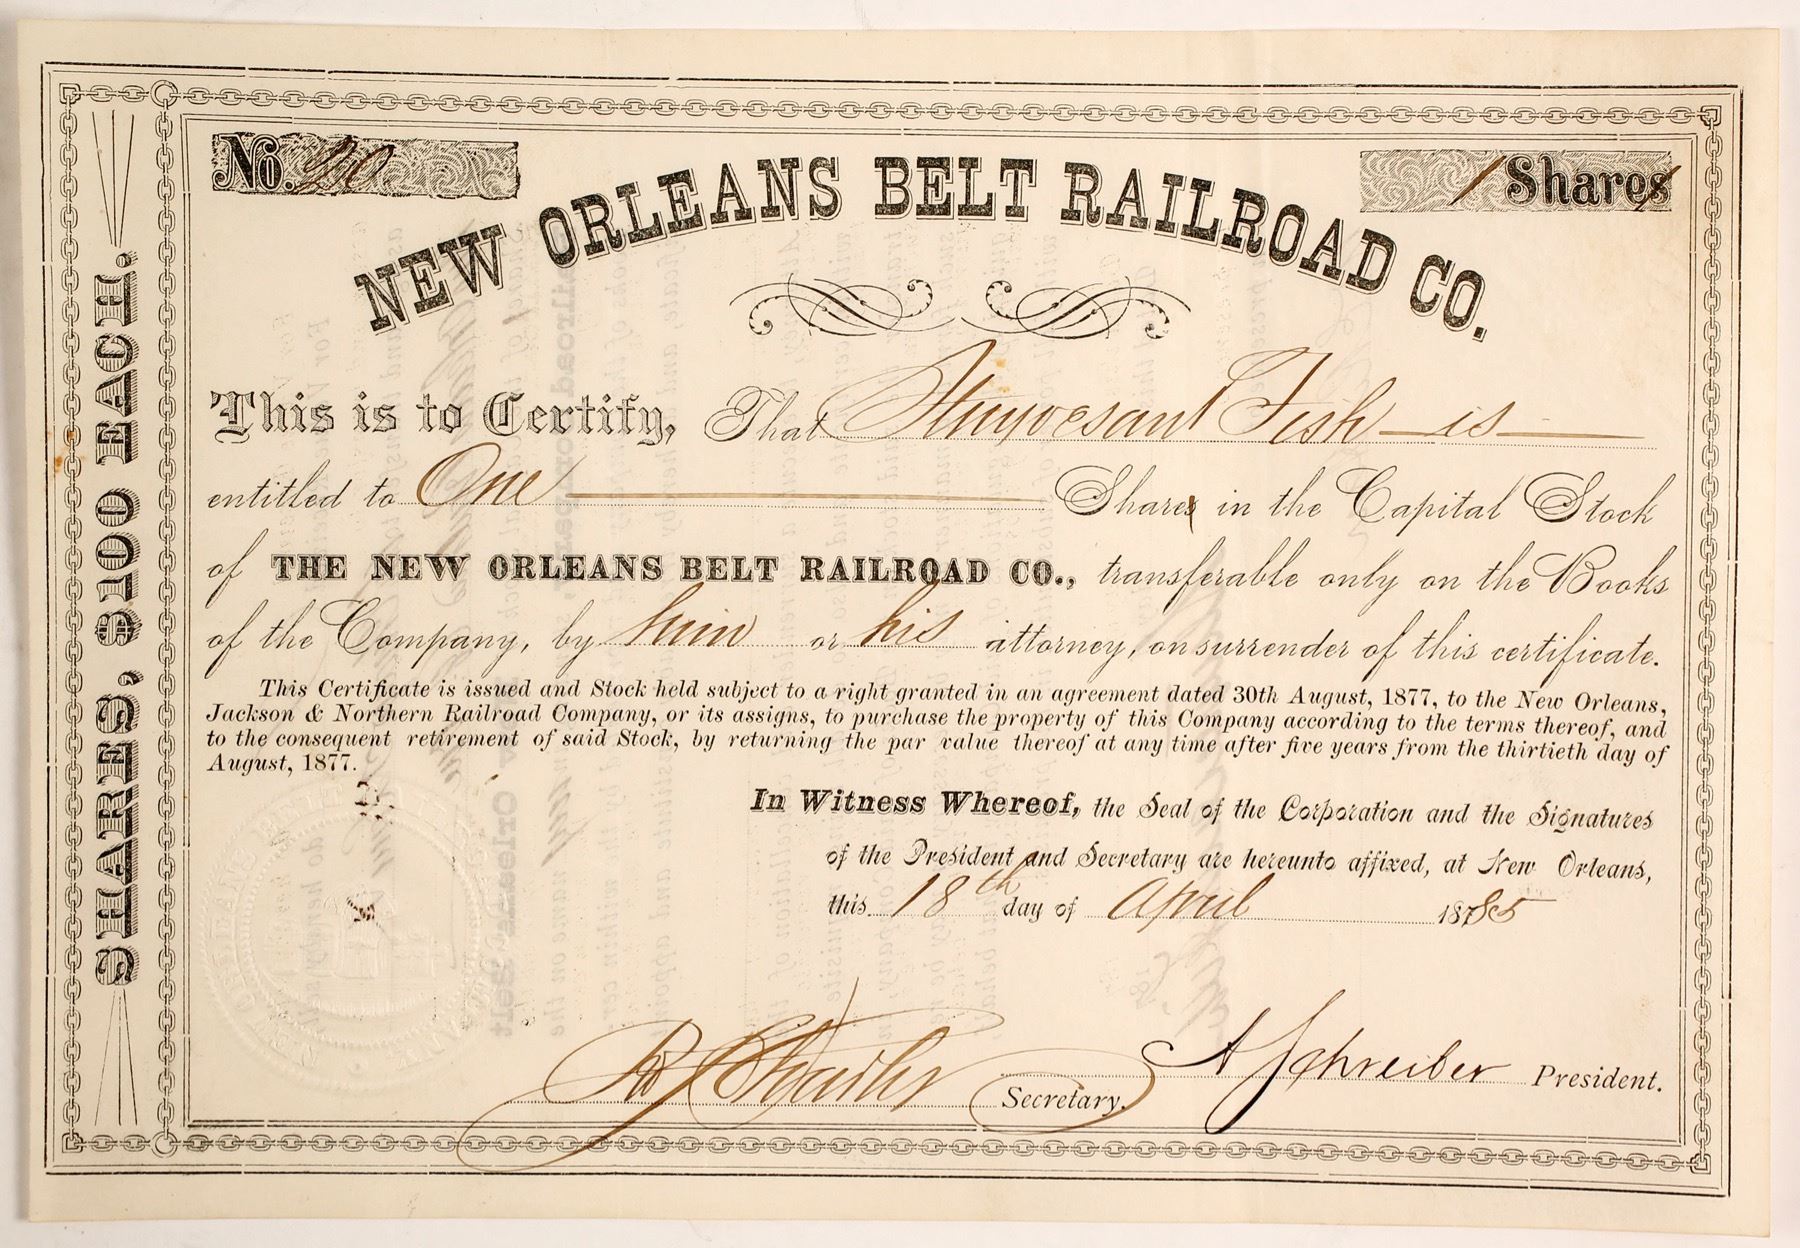 No. 20
1 Shares
NEW ORLEANS BELT RAILROAD CO.
SHARES, $100 EACH.
This is to Certify, That Stuyvesant Fish is
entitled to One Shares in the Capital Stock
of THE NEW ORLEANS BELT RAILROAD CO., transferable only on the Books
of the Company, by him or his attorney, on surrender of this certificate.
This Certificate is issued and Stock held subject to a right granted in an agreement dated 30th August, 1877, to the New Orleans,
Jackson & Northern Railroad Company, or its assigns, to purchase the property of this Company according to the terms thereof, and
to the consequent retirement of said Stock, by returning the par value thereof at any time after five years from the thirtieth day of
August, 1877.
In Witness Whereof, the Seal of the Corporation and the Signatures
of the President and Secretary are hereunto affixed, at New Orleans,
this 18th day of April 1885
Secretary.
A Schreiber President.